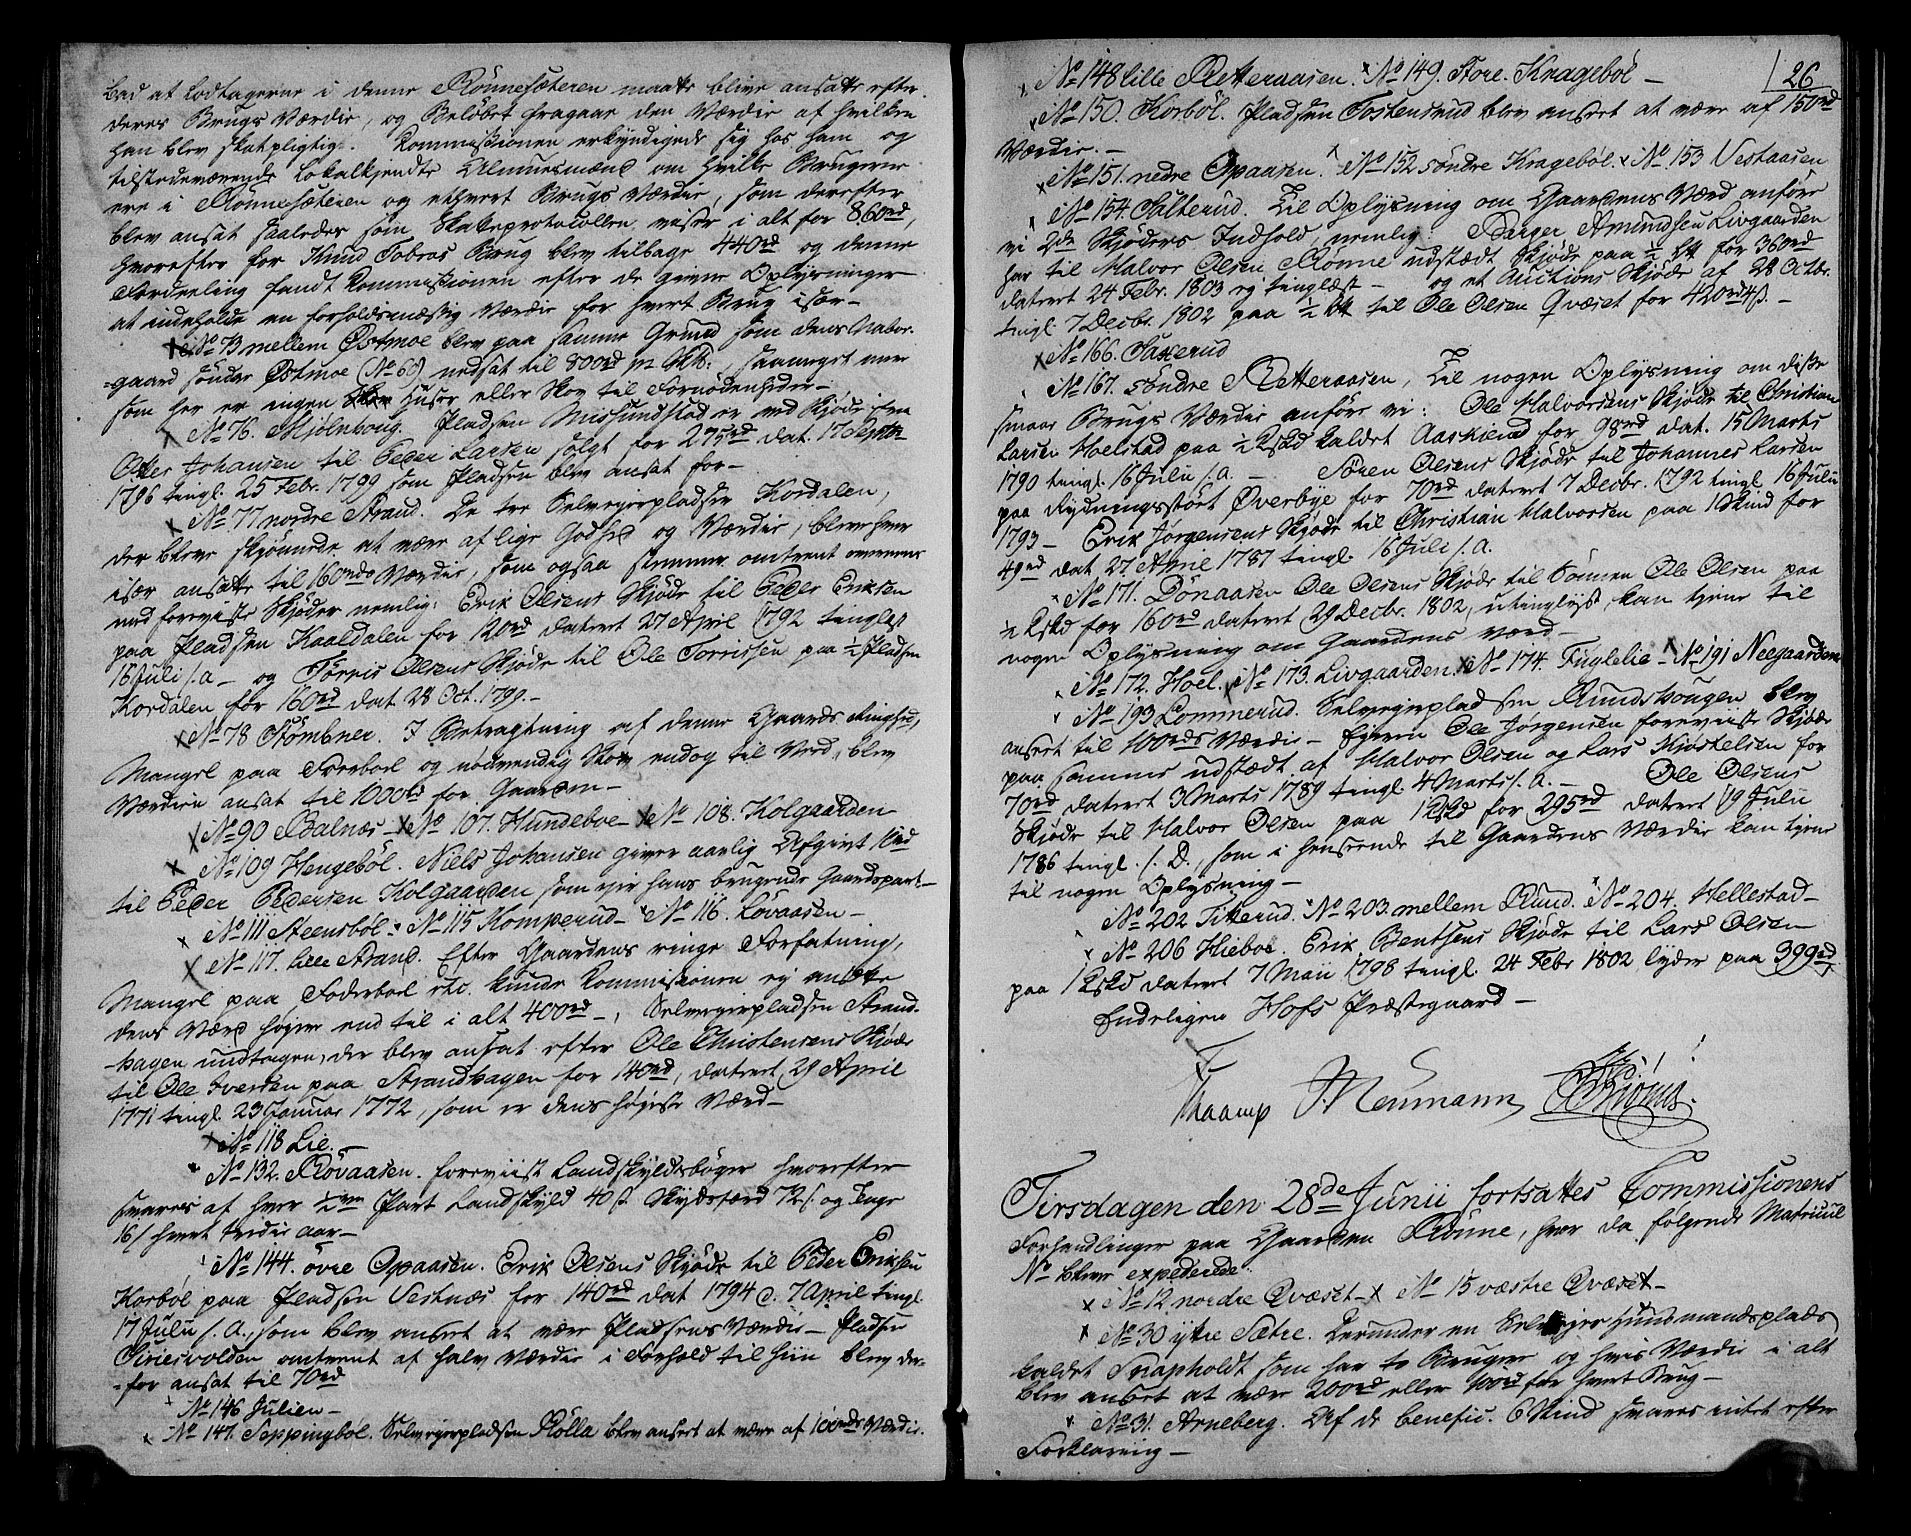 bad at Lodtagerne i denne Rönnesæteren maatte blive ansatte efter
deres Brugs Værdie, og Beløbet fragaae den Værdie af hvilken
han blev skatpligtig. Kommissionen erkyndigede sig hos ham og
tilstedeværende Lokalkjendte Almuesmænd om hvilke Brugerne
ere i Rönnesæteren og ethvert Brugs Værdie, som derefter
blev ansat saaledes som Skatteprotocollen viser i alt for 860rd,
hvorefter for Knud Tobros Brug blev tilbage 440rd og denne
Fordeeling fandt Kommissionen efter de givne Oplysninger
at indeholde en forholdsmæssig Værdie for hvert Brug især-
No 73 mellem Østmoe blev paa samme Grund som dens Nabo-
-gaard söndre Østmoe (No 68) nedsat til 800rd pr Skb: saameget mere
som her er ingen Huser eller Skov til Fornödenheder-
No 76. Mjølnhoug. Pladsen Missundstad er ved Skjöde fra
Otter Johansen til Peder Larsen solgt for 275rd dat. 17 Septr
1796 tingl. 25 Febr. 1799 som Pladsen blev ansat for-
No 77 nordre Strand. De tre Selveyerpladse Kordalen,
der bleve skjönnede at være af lige Godhed og Værdie, bleve hver
især ansatte til 160rds Værdie, som ogsaa stemmer omtrent overeens
med foreviiste Skjöder nemlig: Erik Olsens Skjöde til Peder Eriksen
paa Pladsen Kaaldalen for 120rd dateret 27 April 1792 tinglæst
16 Juli s.a - og Torris Olsens Skjöde til Ole Torrissen paa ½ Pladsen
Kordalen for 160rd dat 28 Oct. 1799.-
No 78 Stömbner. I Betragtning af denne Gaards Ringhed,
Mangel paa Foerboel og nödvendig Skov endog til Ved, blev
Værdien ansat til 1000rd for Gaarden-
No 90 Adalnæs- No 107. Hundeboe- No 108. Kolgaarden-
No 109 Hengeböl. Niels Johansen giver aarlig Afgivt 1rd
til Peder Pedersen Kolgaarden som ejer hans brugende Gaardspart-
No 111 Steensböl- No 115 Komperud- No 116. Lövaasen-
No 117. lille Strand. Efter Gaardens ringe Forfatning,
Mangel paa Foderboel etc. kunde Kommissionen ej ansætte
dens Værd höjere end til i alt 400rd -, Selveyerpladsen Strand-
-hagen undtagen, der blev ansat efter Ole Christensens Skjöde
til Ole Iversen paa Strandhagen for 140rd, dateret 29 April
1771 tingl. 23 Januar 1772, som er dens höjeste Værd-
No 118 Lie.-
No 132. Rövaasen. foreviist Landskyldsböger hvorefter
svares af hver ½ Part Landskyld 40 s. Skydsfærd 72 s. og Tage
16 s hvert tredie aar-
No 144. övre Opaasen. Erik Olsens Skjöde til Peder Eriksen
Korböl paa Pladsen Vestnæs for 140rd dat 1794 d. 7 April tingl.
17 Julii s. A., som blev anseet at være Pladsens Værdie- Pladsen
Siriesvolden omtrent af halv Værdie i Forhold til hiin blev der-
-for ansat til 70rd
No 146 Julien-
No 147. Seppingböl. Selveyerpladsen Rölla blev anseet at være af 100rds Værdie.
26
No 148 lille Retteraasen. No 149. Store. Kragebøl-
No 150. Korböl. Pladsen Tostensrud blev anseet at være af 150rd
Værdie.-
No 151. nedre Opaasen. No 152 söndre Kragebøl. No 153 Vestaasen
No 154. Salterud. Til Oplysning om Gaardens Værd anföre
vi 2de Skjöders Indhold, nemlig Borger Amundsen Livgaarden
har til Halvor Olsen Rönne udstædt Skjöde paa ½ for 360rd
dateret 24 Febr. 1803 og tinglæst- og et Auctions Skjöde af 28 Octbr.
tingl. 7 Decbr. 1802 paa ½ til Ole Olsen Qvæset for 420rd 4s.-
No 166. Saxerud
No 167. söndre Retteraasen, Til nogen Oplysning om disse
smaae Brugs Værdie anföre vi: Ole Halvorsens Skjöde til Christian
Larsen Hoelstad paa ½ Skd kaldet Aaskiend for 98rd dat. 15 Marts
1790 tingl. 16 Julii s.a.- Sören Olsens Skjöde til Johannes Larsen
paa Rydningsstört Øverbye for 70rd dateret 7 Decbr. 1792 tingl 16 Julii
1793- Erik Jørgensens Skjöde til Christian Halvorsen paa 1 Skind for
49rd dat 27 April 1787 tingl. 16 Juli s.a.
No 171. Dönaasen Ole Olsens Skjöde til Sönnen Ole Olsen paa
½ Skd for 160rd dateret 29 Decbr. 1802, utinglyst, kan tjene til
nogen Oplysning om Gaardens Værd-
No 172. Hoel. No 173. Livgaarden. No 174. Fuglelie- No 191 Neegaarden
No 193 Lommerud. Selveyerpladsen Rundhougen blev
anseet til 100rds Værdie- Ejeren Ole Jørgensen foreviiste Skjöde
paa samme udstædt af Halvor Olsen og Lars Kjøstelsen for
70rd dateret 3 Marts 1789 tingl. 4 Marts s. A.- Ole Olsens
Skjöde til Halvor Olsen paa 1 Skd for 295rd dateret 19 Julii
1786 tingl. s. D., som i henseende til Gaardens Værdie kan tjene
til nogen Oplysning-
No 202 Titterud. No 203. mellem Rund. No 204. Hellestad-
No 206 Hieboe. Erik Bentsens Skjöde til Lars Olsen
paa 1 Skd dateret 7 Maii 1798 tingl. 24 Febr 1802 lyder paa 399rd,
Endeligen Hofs Præstegaard-
Thaarup J. Neumann
Tirsdagen den 28de Junii fortsattes Commissionens
Forhandlinger paa Gaarden Rönne, hvor da følgende Matricul
No bleve expederede:
No 12 nordre Qvæset- No 15 væstre Qvæset-
No 30 ytre Sætre. Derunder en Selvejer Huusmandsplads
kaldet Snapholdt som har to Brugere og hvis Værdie i alt
blev anseet at være 200rd eller 100rd for hvert Brug-
No 31. Arneberg. Af de benefic. 6 Skind svares intet efter
Forklaring-